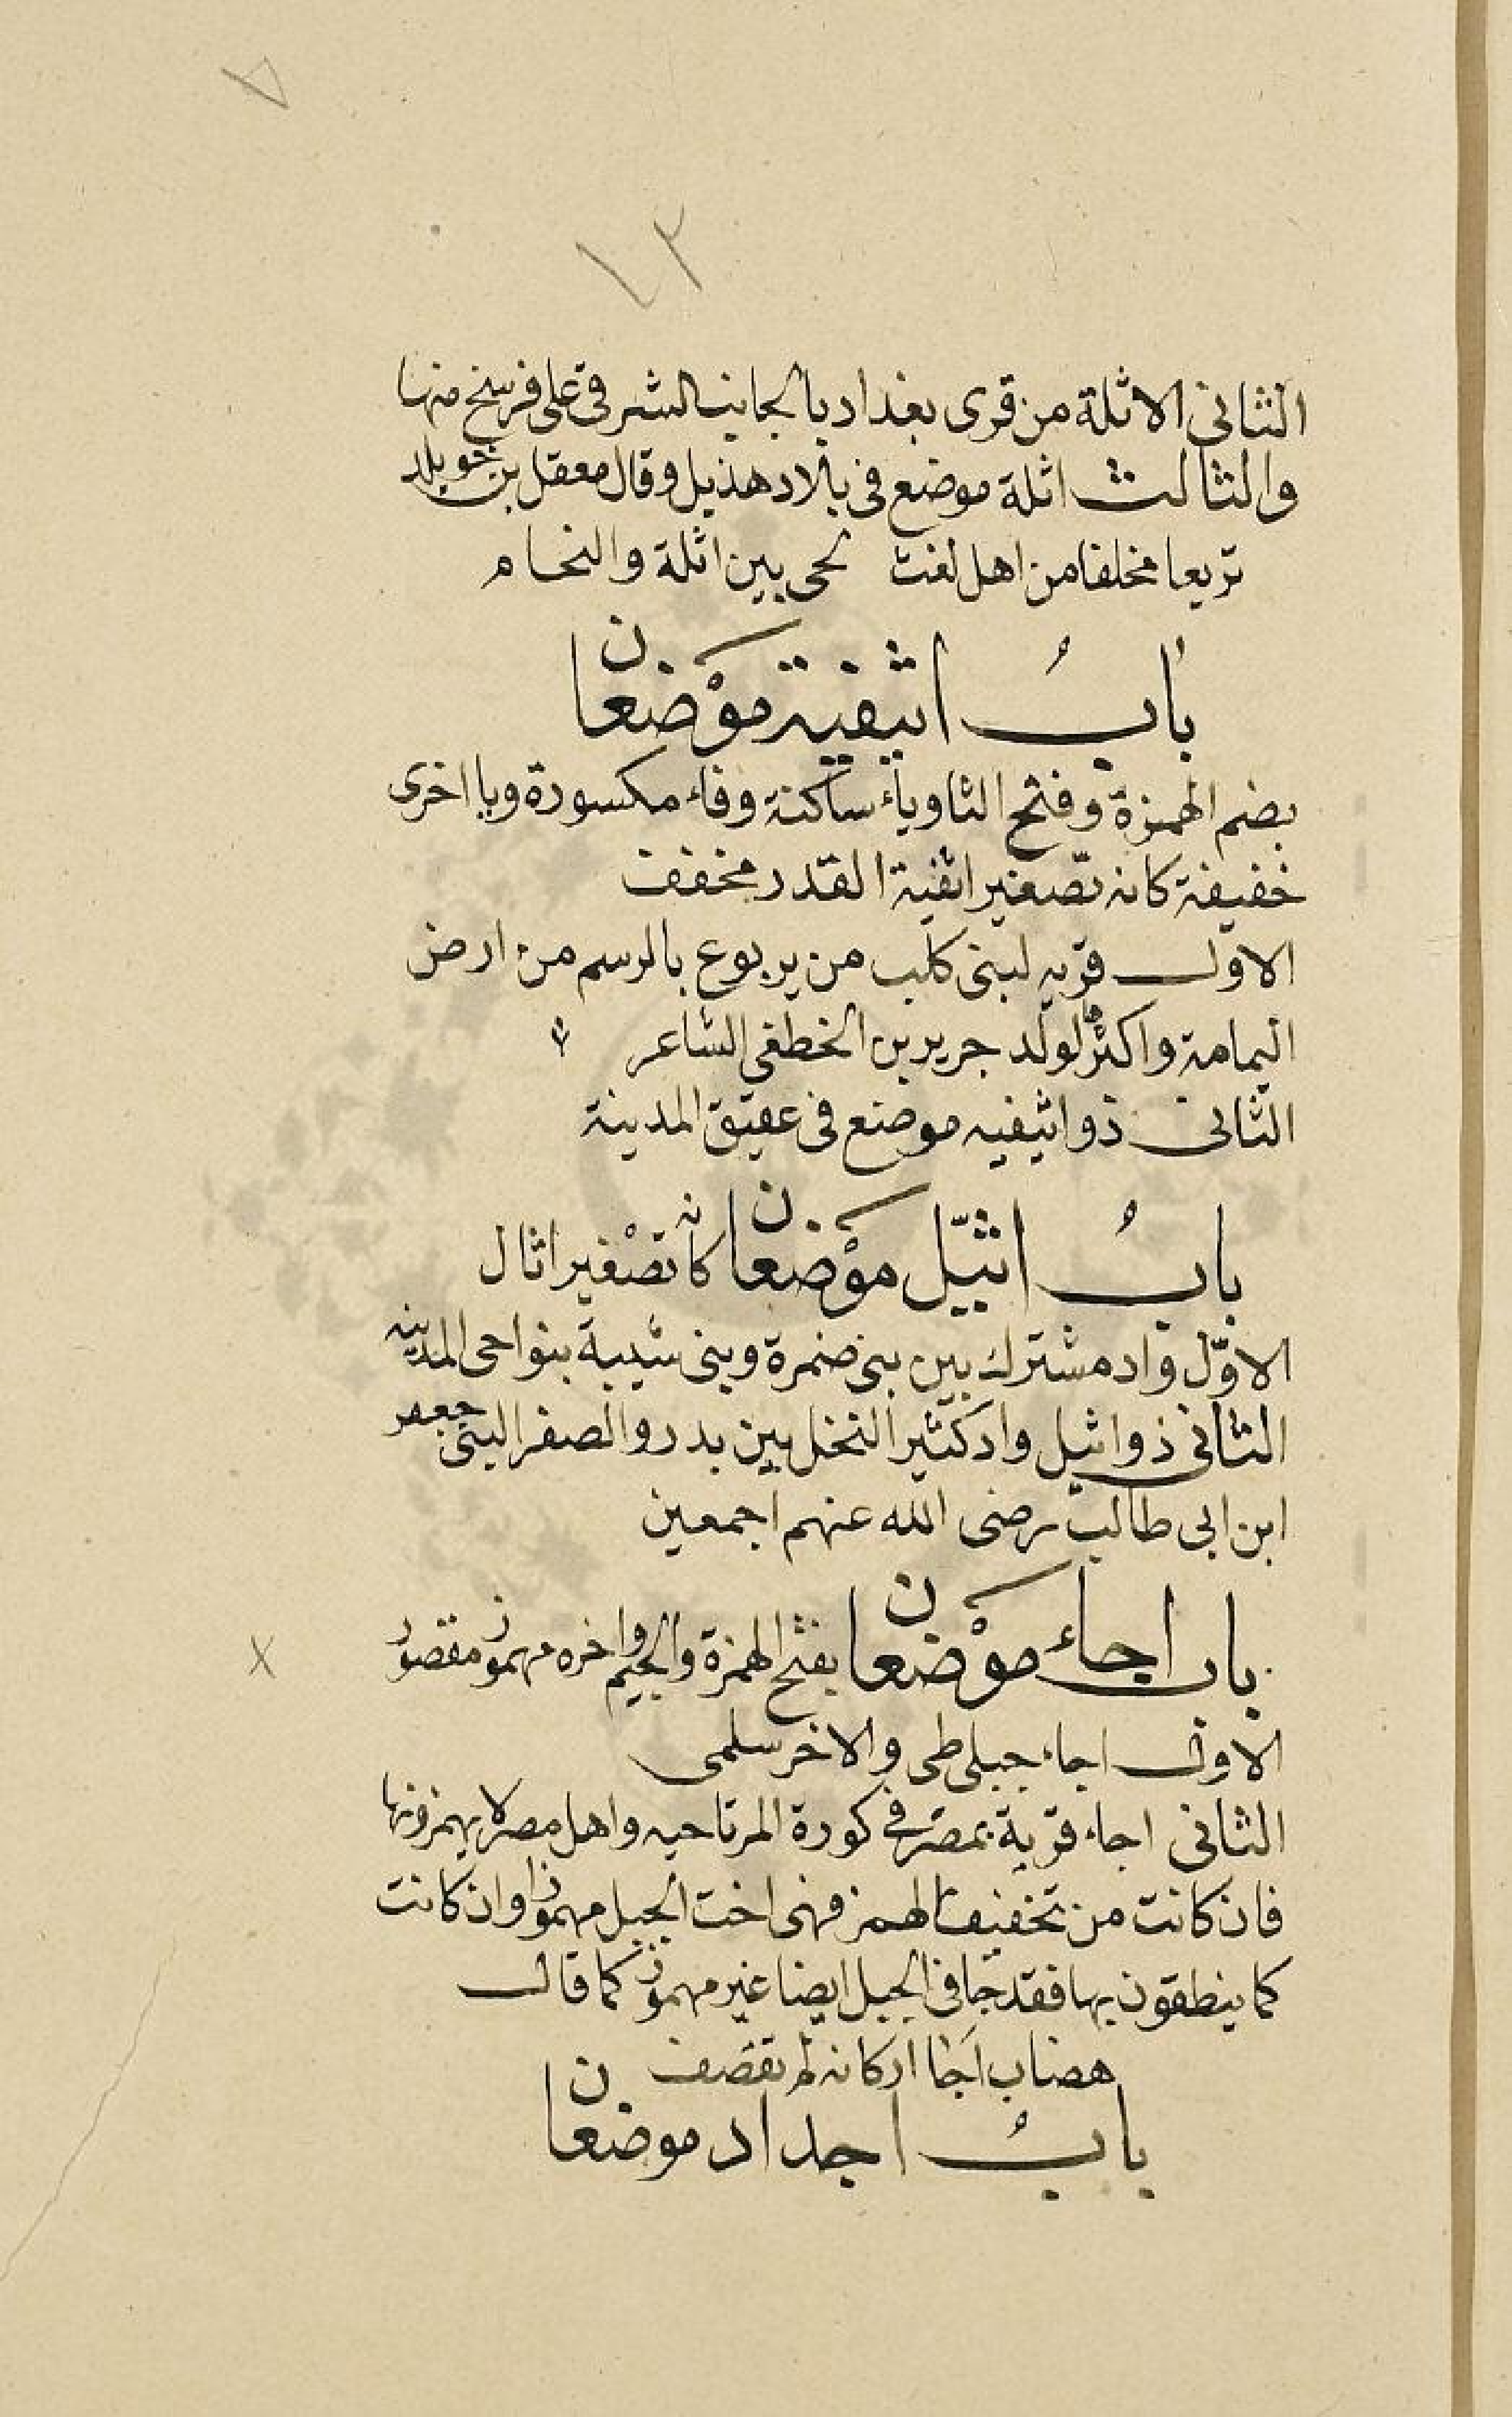 ١٣
الثانى الاثلة من قرى بغداد بالجانب الشرقى على فرسخ منها
والثالث اثلة موضع فى بلاد هذيل وقال معقل بن خويلد
تريعا مخلفا من اهل لفت لحى بين اثلة والنحام
بابُ اثيفية موْضعان
بضم الهمزة وفتح الثا وياء ساكنة وفاء مكسورة ويا اخرى
خفيفة كانه تصغير اثفية القدر مخفف
الاول قريه لبنى كليب من يربوع بالرسم من ارض
اليمامة واكثرها لولد جرير بن الخطفى الشاعر
الثانى ذو اثيفيه موضع فى عقيق المدينة
بابُ اثيّل موْضعان كانه تصْغير اثال
الاوّل واد مشترك بين بنى ضمرة وبنى شيبة بنواحى المدينه
الثانى ذو اثيل واد كثير النخل بين بدر والصفرا لبنى جعفر
ابن ابى طالب رضى الله عنهم اجمعين
باب اجاء موْضعان بفتح الهمزة والجيم واخره مهموز مقصور
الاول اجاء جبلى طى والاخر سلمى
الثانى اجاء قرية بمصر فى كورة المرتاحيه واهل مصر لا يهمزونها
فان كانت من تخفيف الهمز فهى اخت الجبل مهموزا وان كانت
كما ينطقون بها فقد جا فى الجبل ايضا غير مهموز كما قال
هضاب اجا اركانه لم تقصف
بابُ اجداد موضعان